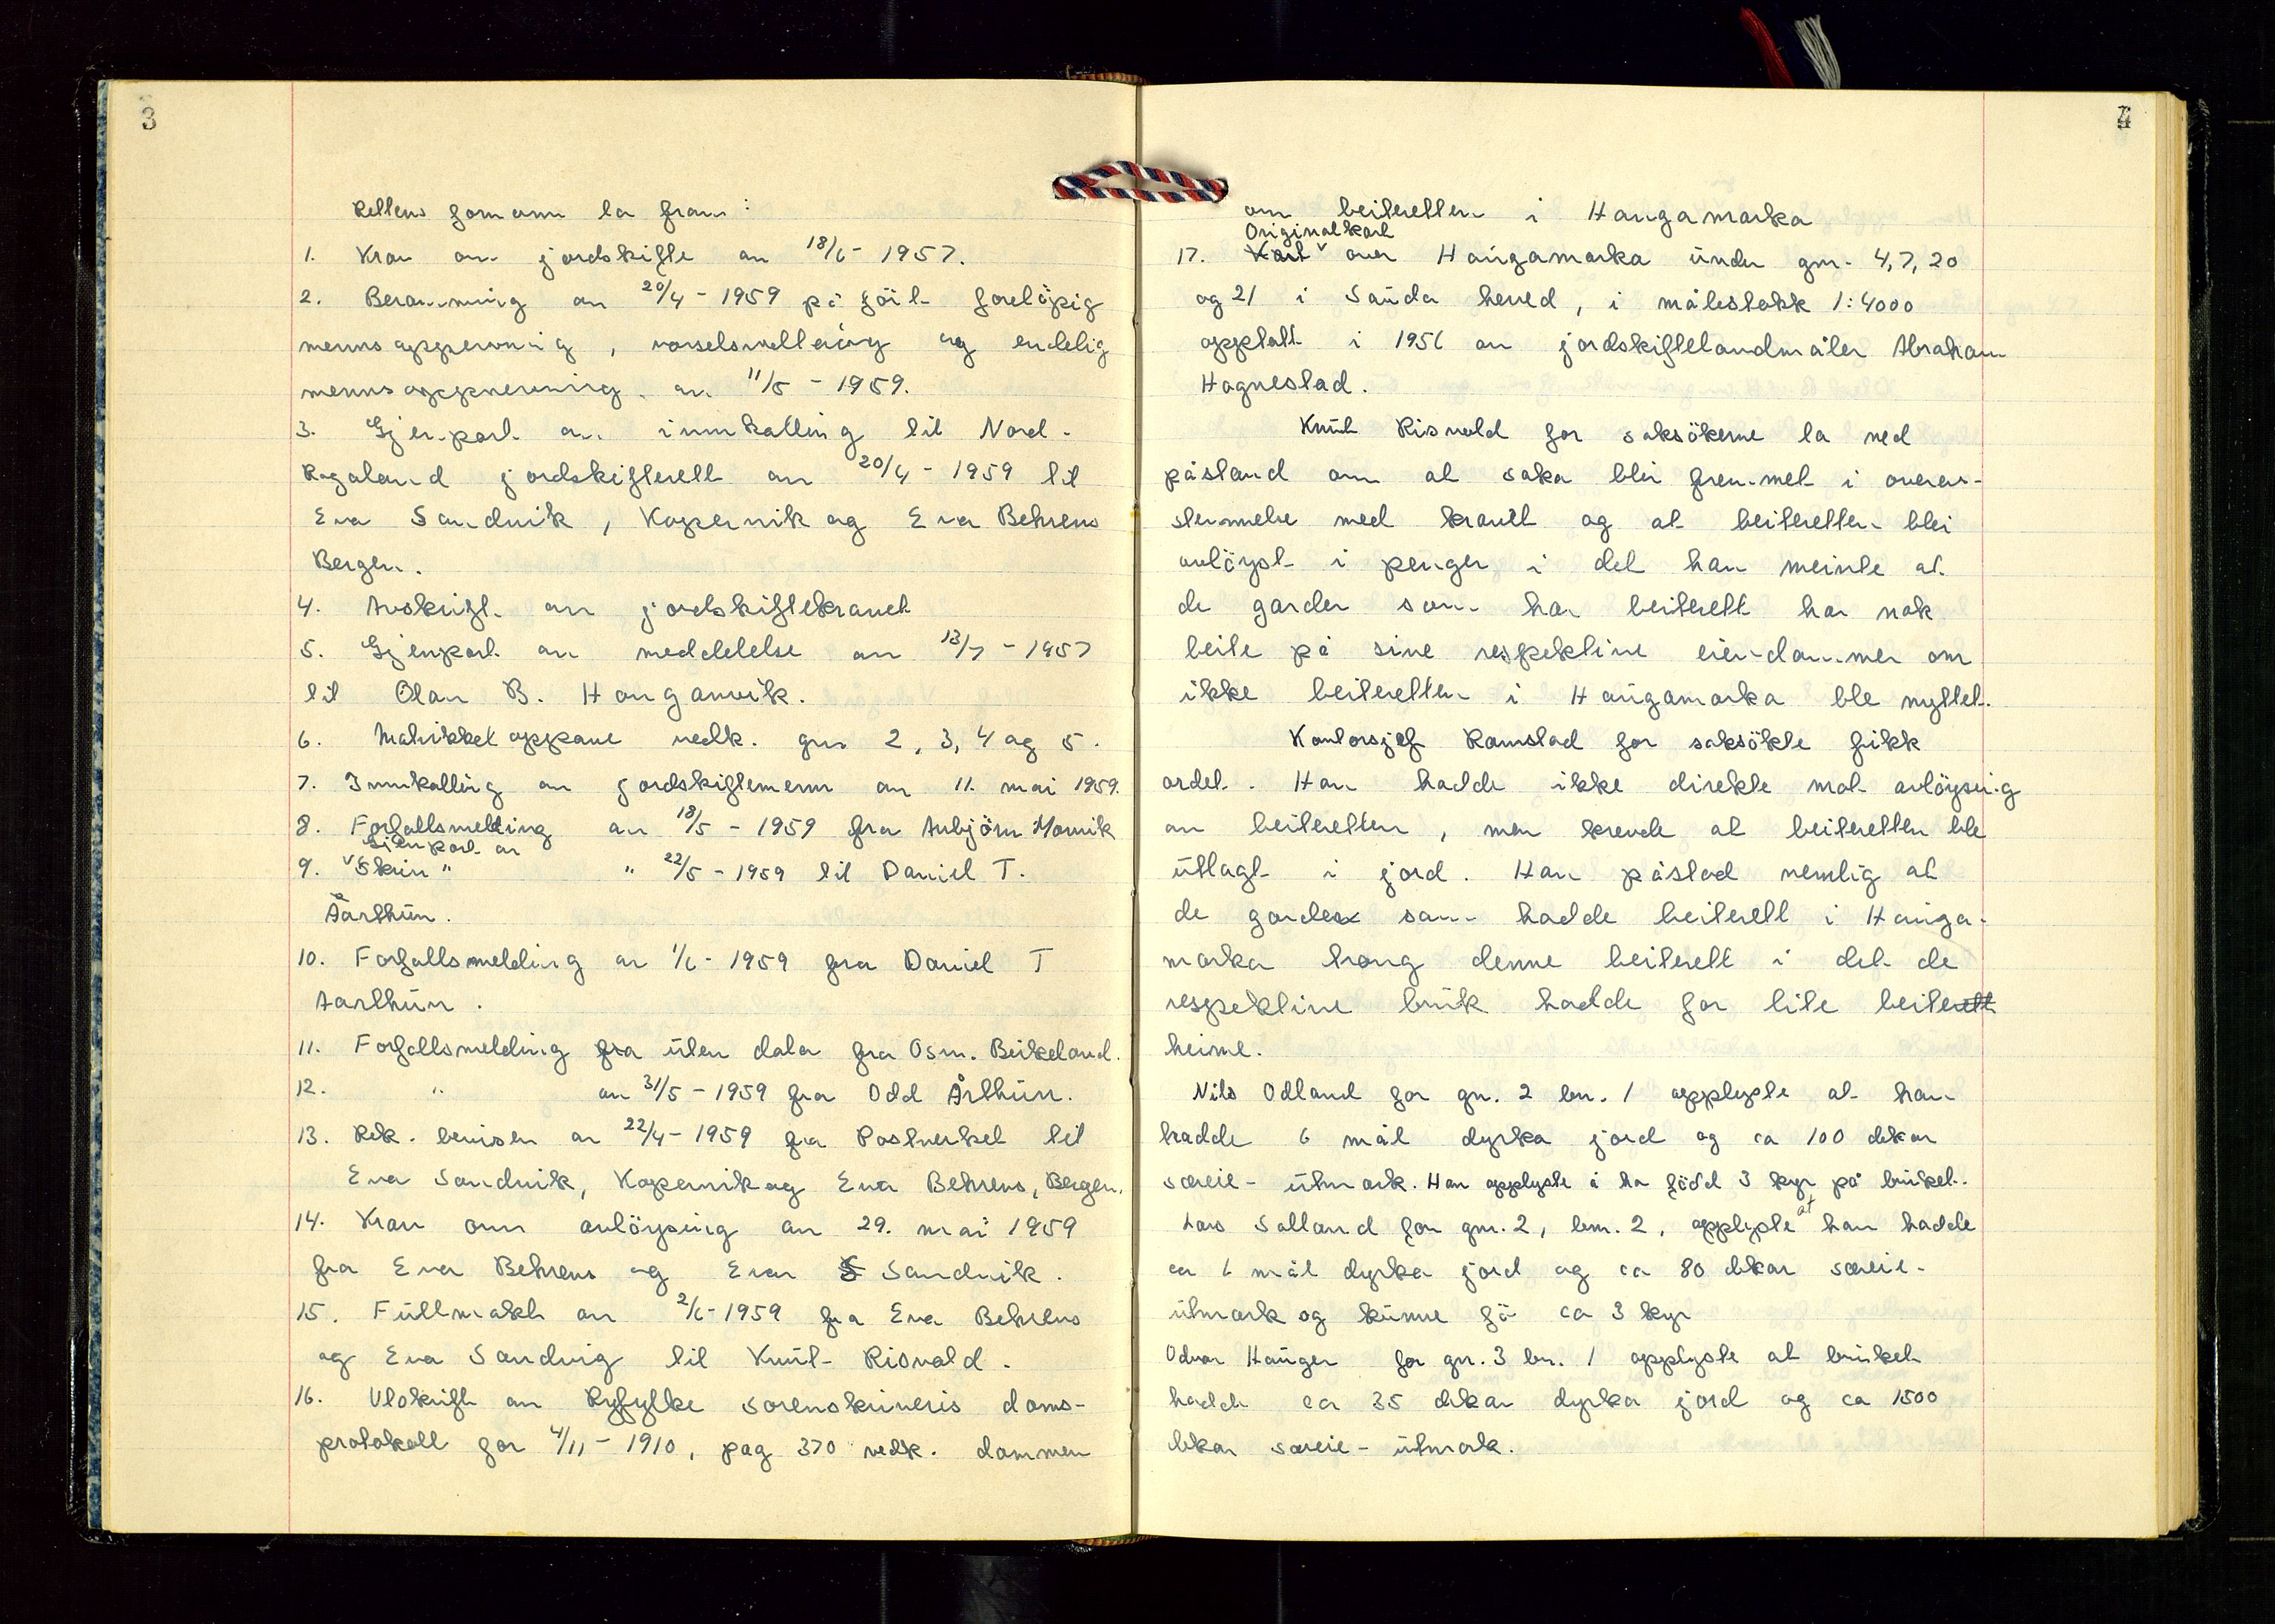 3
Rettens formann la fram:
1. Krav om jordskifte av 18/6 - 1957.
2. Berammning av 20/4 - 1959 på föit forelöpig
mennsoppnevning, varselsmelding og endelig
mennsoppnevning av 11/5 - 1959.
3. Gjenpart av innkalling til Nord-
Rogaland jordskifterett av 20/4 - 1959 til
Eva Sandvik, Kopervik og Eva Behrens
Bergen.
4. Avskrift av jordskiftekravet
5. Gjenpart av meddelelse av 13/7 - 1957
til Olav B. Honganvik.
6. Matrikkeloppgave vedk. gnr 2, 3, 4 og 5.
7. Innkalling av jordskiftemenn av 11. mai 1959.
8. Forfallsmelding av 18/5 - 1959 fra Anbjörn Morvik
Gjenpart av
9. Skriv " " 22/5 - 1959 til Daniel T.
Aarthun.
10. Forfallsmelding av 1/6 - 1959 fra Daniel T
Aarthun.
11. Forfallsmelding fra uten dato fra Osm. Birkeland.
12. " av 31/5 - 1959 fra Odd Årthun.
13. Rek. beviser av 22/4 - 1959 fra Postverket til
Eva Sandvik, Kopervik og Eva Behrens, Bergen.
14. Krav om avlöysing av 29. mai 1959
fra Eva Behrens og Eva S Sandvik.
15. Fullmakt av 2/6 - 1959 fra Eva Behrens
og Eva Sandvig til Knut Risvold.
16. Utskrift av Ryfylke sorenskriveris doms-
protokoll for 4/11 - 1910, pag 370 vedk. dommen
4
om beiteretten i Haugamarka
Originalkart
17. Kart over Haugamarka under gnr. 4, 7, 20
og 21 i Sauda herred, i målestokk 1:4000
opptatt i 1956 av jordskiftelandmåler Abraham
Hognestad.
Knut Risvold for saksökerne la ned
påstand om at saka blei fremmet i overens-
stemmelse med kravet og at beiteretten blei
avlöyst i penger i det han meinte at
de garder som har beiterett har nok
beite på sine respektive eiendommer om
ikke beiteretten i Haugamarka ble nyttet.
Kontorsjef Ramstad for saksökte fikk
ordet. Han hadde ikke direkte mot avlöysing
av beiteretten, men krevde at beiteretten ble
utlagt i jord. Han påstod nemlig at
de garder som hadde beiterett i Hauga-
marka trong denne beiterett i det de
respektive bruk hadde for lite beiterett
heime.
Nils Odland for gnr. 2 bnr. 1 opplyste at han
hadde 6 mål dyrka jord og ca 100 dekar
sæeie- utmark. Han opplyste å ha född 3 kyr på bruket.
Lars Salland for gnr. 2, bnr. 2, opplyste at han hadde
ca 6 mål dyrka jord og ca 80 dekar særeie-
utmark og kunne fö ca 3 kyr
Odvar Hauger for gnr. 3 bnr. 1 opplyste at bruket
hadde ca 35 dekar dyrka jord og ca 1500
dekar særeie- utmark.